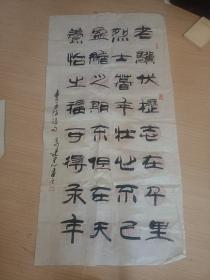 老驥伏櫪志在千里
烈士暮年壮心不已
盈縮之期不但在天
養怡之福可得永年